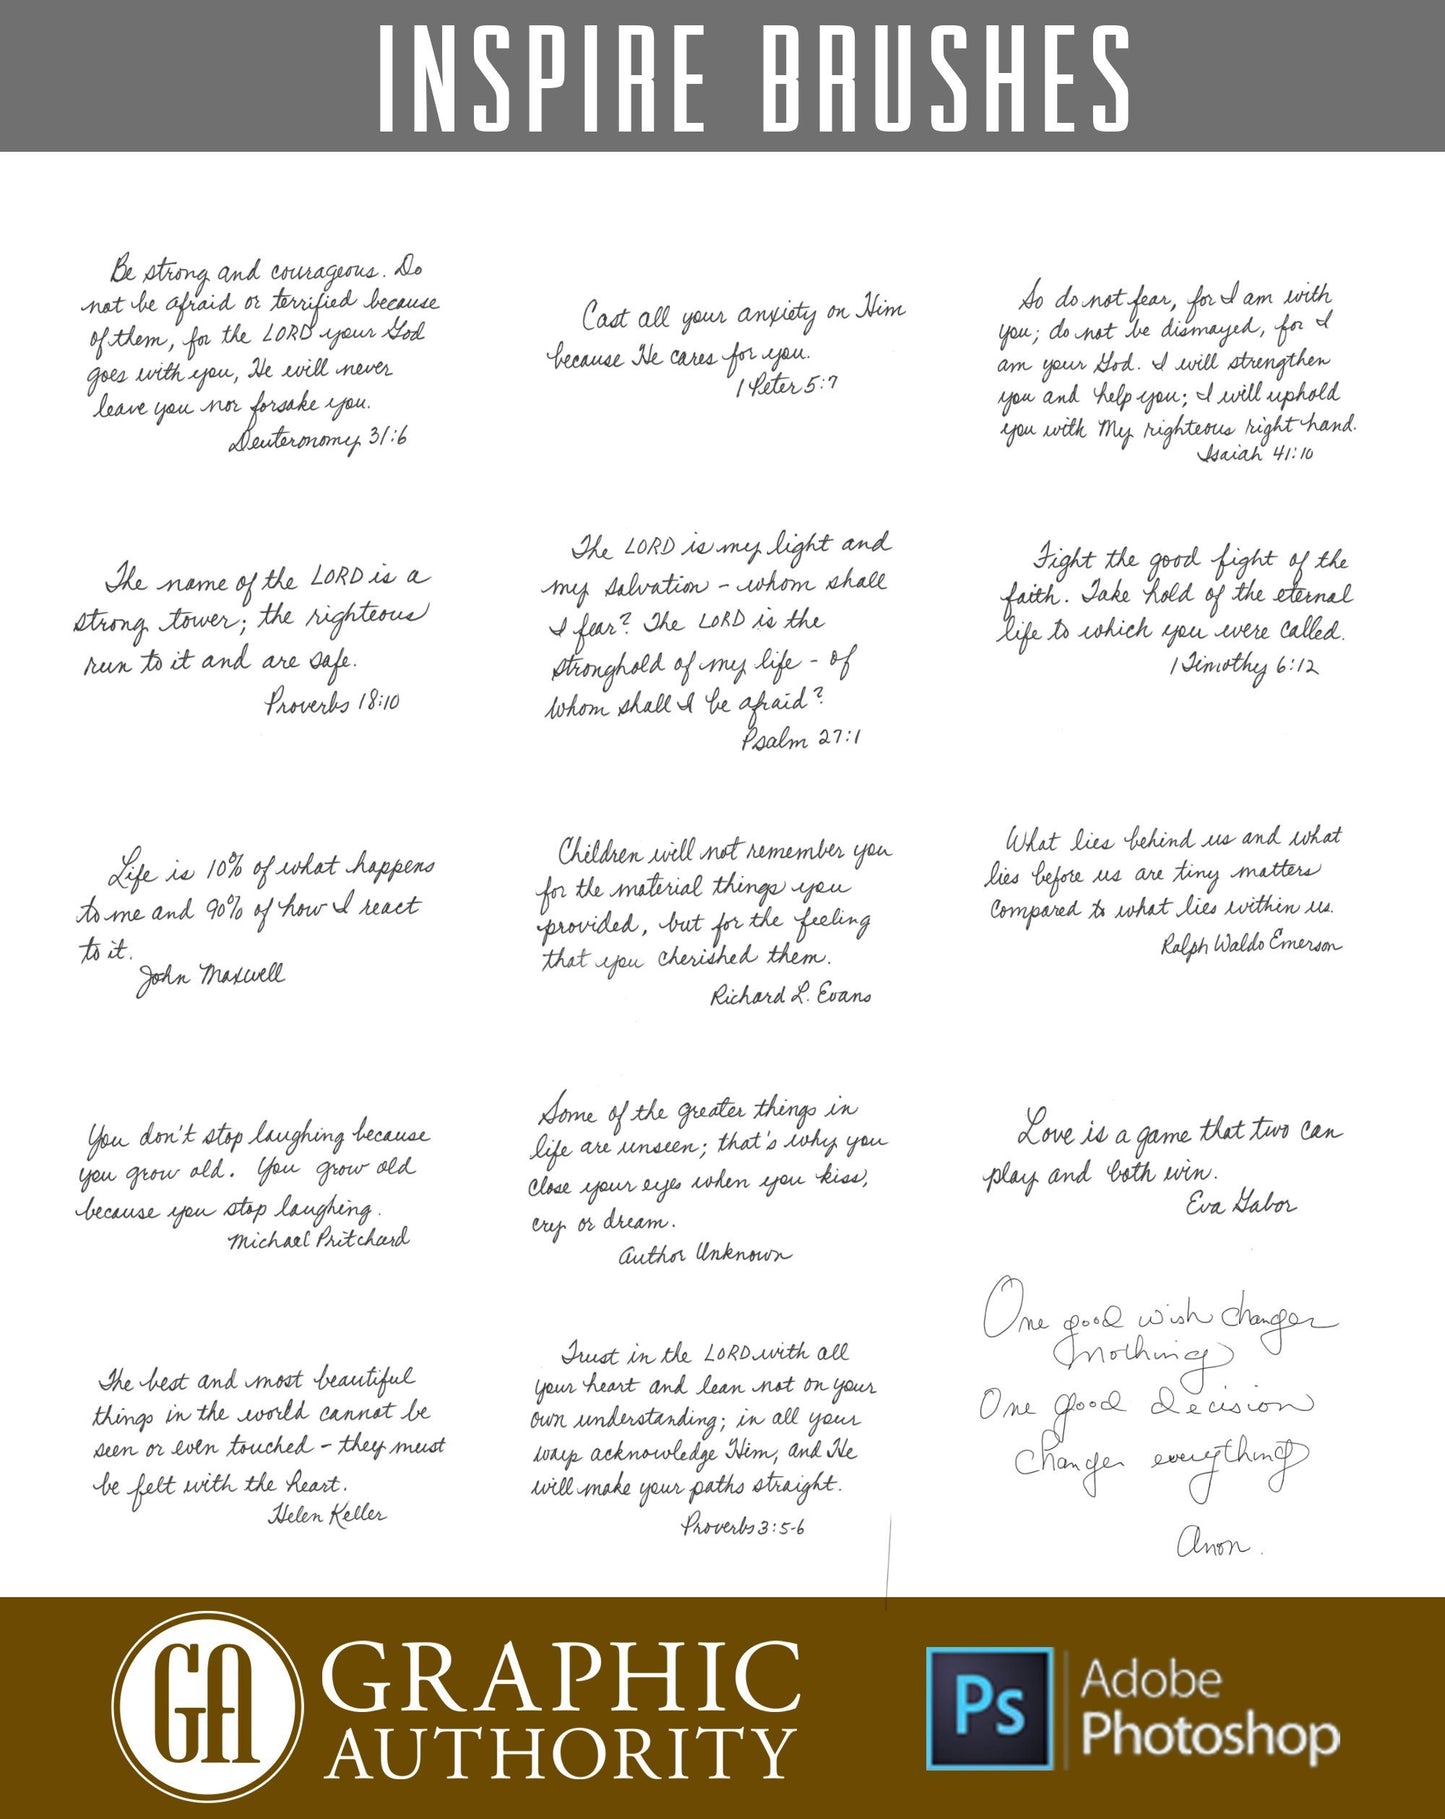 INSPIRE BRUSHES
Be strong and courageous. Do
not be afraid or terrified because
of them, for the LORD your God
goes with you, He will never
leave you nor forsake you.
Deuteronomy 31:6
Cast all your anxiety on Him
because He cares for you.
1 Peter 5:7
So do not fear, for I am with
you; do not be dismayed, for I
am your God. I will strengthen
you and help you; I will uphold
you with My righteous right hand.
Isaiah 41:10
The name of the LORD is a
strong tower; the righteous
run to it and are safe.
Proverbs 18:10
The LORD is my light and
my salvation - whom shall
I fear? The LORD is the
stronghold of my life - of
whom shall I be afraid?
Psalm 27:1
Fight the good fight of the
faith. Take hold of the eternal
life to which you were called.
1 Timothy 6:12
Life is 10% of what happens
to me and 90% of how I react
to it.
John Maxwell
Children will not remember you
for the material things you
provided, but for the feeling
that you cherished them.
Richard L. Evans
What lies behind us and what
lies before us are tiny matters
compared to what lies within us.
Ralph Waldo Emerson
You don't stop laughing because
you grow old. You grow old
because you stop laughing.
Michael Pritchard
Some of the greater things in
life are unseen; that's why you
close your eyes when you kiss,
cry or dream.
Author Unknown
Love is a game that two can
play and both win.
Eva Gabor
The best and most beautiful
things in the world cannot be
seen or even touched - they must
be felt with the heart.
Helen Keller
Trust in the LORD with all
your heart and lean not on your
own understanding; in all your
ways acknowledge Him, and He
will make your paths straight.
Proverbs 3:5-6
One good wish changes
nothing
One good decision
changes everything
Anon.
GA
GRAPHIC
AUTHORITY
Ps
Adobe
Photoshop